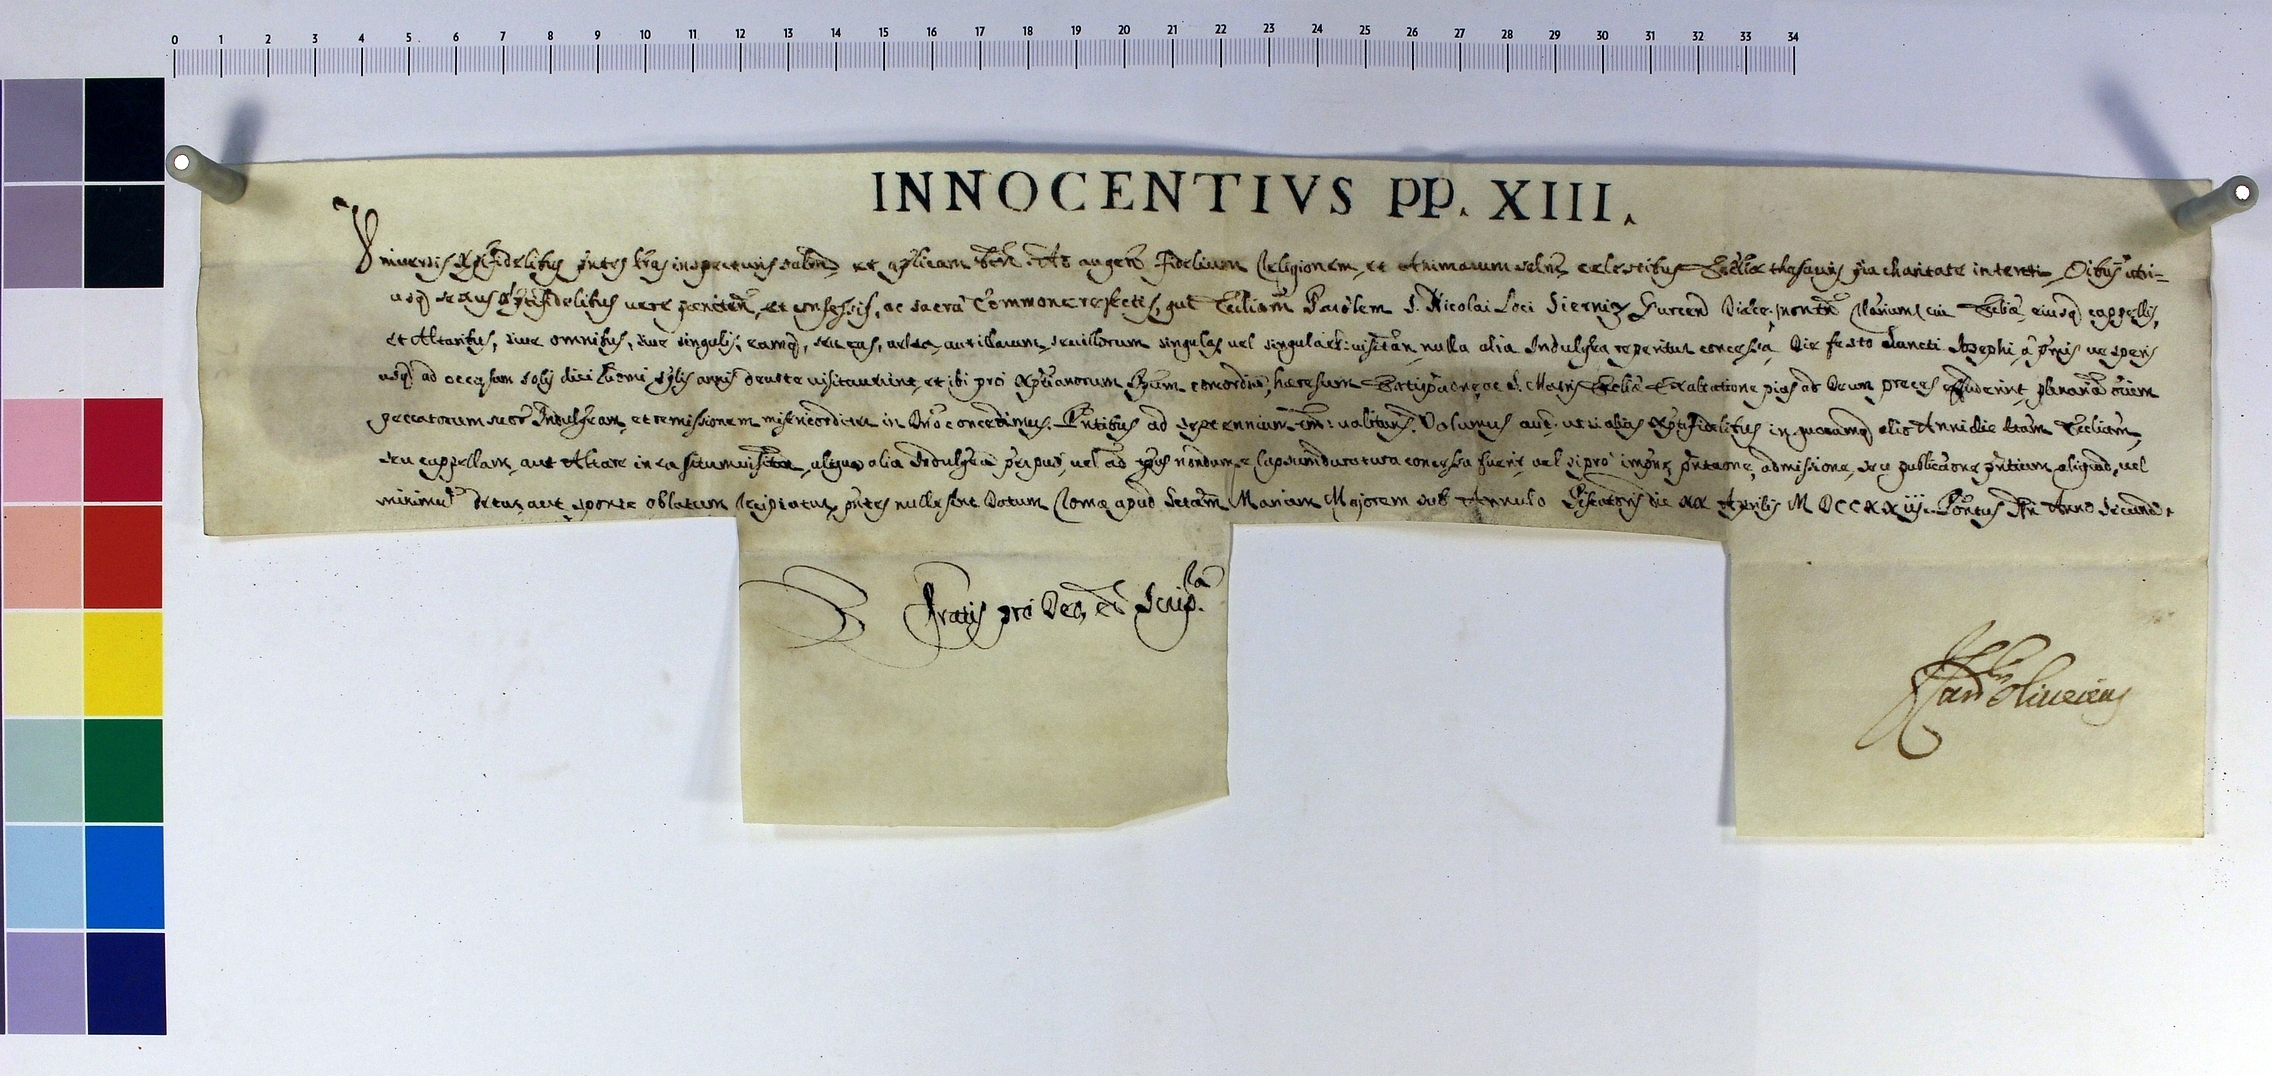 0 1 2 3 4 5 6 7 8 9 10 11 12 13 14 15 16 17 18 19 20 21 22 23 24 25 26 27 28 29 30 31 32 33 34
INNOCENTIVS PP. XIII.
Vniversis Xpifidelibus pntes lras inspecturis salem et aplicam ben. Ad augen Fidelium Religionem, et Animarum salut celestibus Ecclie thesauris pia charitate intenti, Oibus utri=
usq sexus Xpifidelibus vere peniten, et confessis, ac sacra Commone refectis, qui Eccliam Parolem S. Nicolai Loci Sierniz Gurcen Dioec. Marium cui Eccliae, eiusq cappellis,
et Altaribus, sive omnibus, sive singulis, eamq, seu eas, vel ea, aut illarum, seu illorum singulas vel singula visitan nulla alia Indulgea reperitur concessa Die festo Sancti Josephi a primis vesperis
usq ad occasum solis diei huiusmi sglis annis devote visitaverint, et ibi pro Xpianorum Ppum concordia, haeresum Extirpaone, ac S. Matris Ecclie Exaltatione pias ad Deum preces effuderint, plenariam oium
peccatorum suor Indulgeam, et remissionem misericorditer in Dno concedimus. Pntibus ad septennium tm valituris. Volumus aut ut si alias Xpifidelibus in quocumq alio Anni die dtam Eccliam,
seu cappellam, aut Altare in ea situm visitan, aliqua alia Indulgea perpuo, vel ad tpus nondum elapsum duratura concessa fuerit vel si pro impne, pntaone, admissione, seu publicaone pntium aliquid, vel
minimu detur, aut sponte oblatum recipiatur, pntes nulle sint Datum Rome apud Sctam Mariam Majorem sub Annulo Piscatoris die XX Aprilis M DCCXXiij. Pontus Nri Anno Secundo.
Gratis pro Deo, et Scripra
Card Oliverius